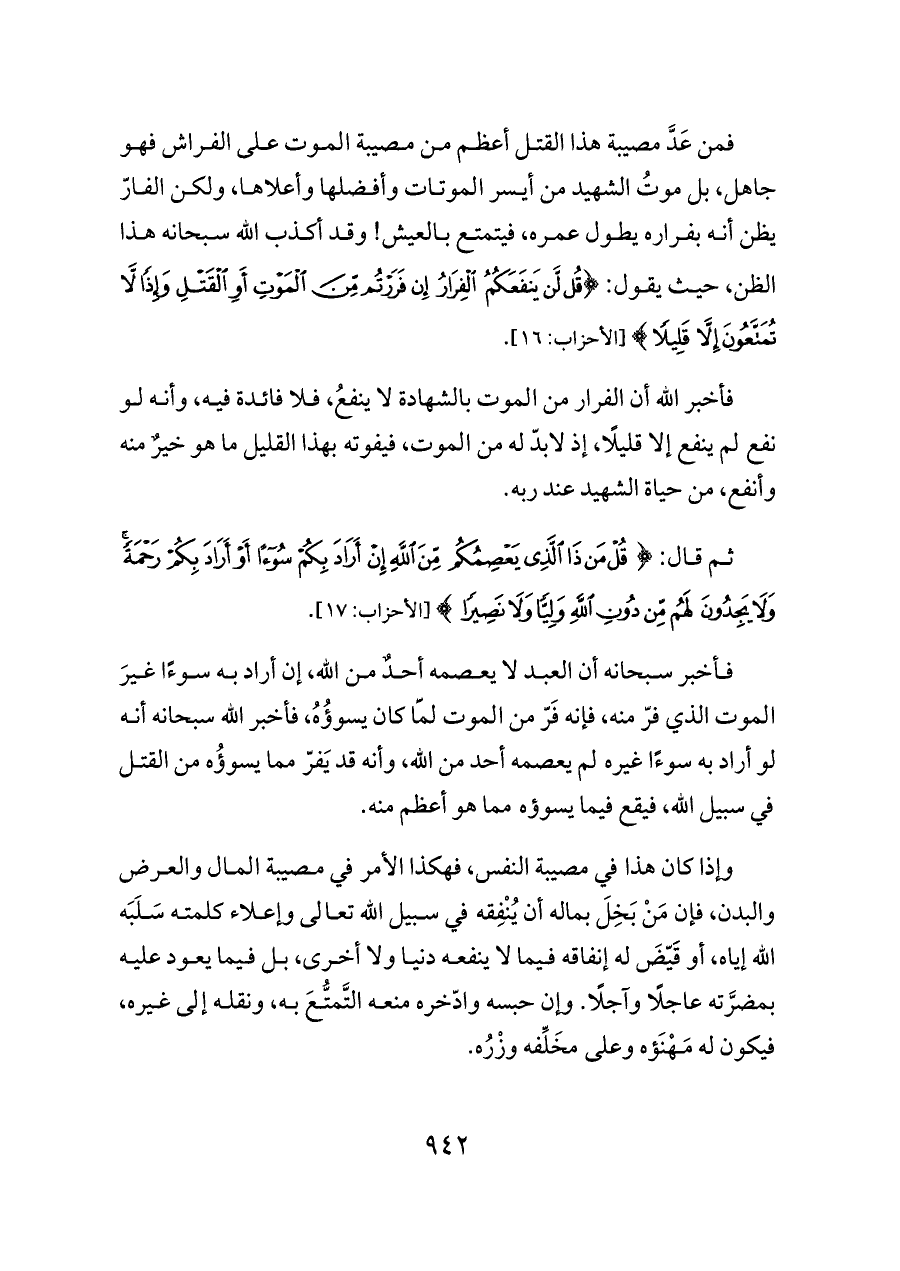 فمن عَدَّ مصيبة هذا القتل أعظم من مصيبة الموت على الفراش فهو
جاهل، بل موتُ الشهيد من أيسر الموتات وأفضلها وأعلاها، ولكن الفارّ
يظن أنه بفراره يطول عمره، فيتمتع بالعيش! وقد أكذب الله سبحانه هذا
الظن، حيث يقول: ﴿قُل لَّن يَنفَعَكُمُ ٱلْفِرَارُ إِن فَرَرْتُم مِّنَ ٱلْمَوْتِ أَوِ ٱلْقَتْلِ وَإِذًا لَّا
تُمَتَّعُونَ إِلَّا قَلِيلًا﴾ [الأحزاب: ١٦].
فأخبر الله أن الفرار من الموت بالشهادة لا ينفعُ، فلا فائدة فيه، وأنه لو
نفع لم ينفع إلا قليلًا، إذ لابدّ له من الموت، فيفوته بهذا القليل ما هو خيرٌ منه
وأنفع، من حياة الشهيد عند ربه.
ثم قال: ﴿قُلْ مَن ذَا ٱلَّذِى يَعْصِمُكُم مِّنَ ٱللَّهِ إِنْ أَرَادَ بِكُمْ سُوٓءًا أَوْ أَرَادَ بِكُمْ رَحْمَةً ۚ
وَلَا يَجِدُونَ لَهُم مِّن دُونِ ٱللَّهِ وَلِيًّا وَلَا نَصِيرًا﴾ [الأحزاب: ١٧].
فأخبر سبحانه أن العبد لا يعصمه أحدٌ من الله، إن أراد به سوءًا غيرَ
الموت الذي فرّ منه، فإنه فَرّ من الموت لمّا كان يسوؤُهُ، فأخبر الله سبحانه أنه
لو أراد به سوءًا غيره لم يعصمه أحد من الله، وأنه قد يَفرّ مما يسوؤُه من القتل
في سبيل الله، فيقع فيما يسوؤه مما هو أعظم منه.
وإذا كان هذا في مصيبة النفس، فهكذا الأمر في مصيبة المال والعرض
والبدن، فإن مَنْ بَخِلَ بماله أن يُنْفِقه في سبيل الله تعالى وإعلاء كلمته سَلَبَه
الله إياه، أو قَيّضَ له إنفاقه فيما لا ينفعه دنيا ولا أخرى، بل فيما يعود عليه
بمضرَّته عاجلًا وآجلًا. وإن حبسه وادّخره منعه التَّمتُّعَ به، ونقله إلى غيره،
فيكون له مَهْنَؤه وعلى مخَلِّفه وزْرُه.
٩٤٢